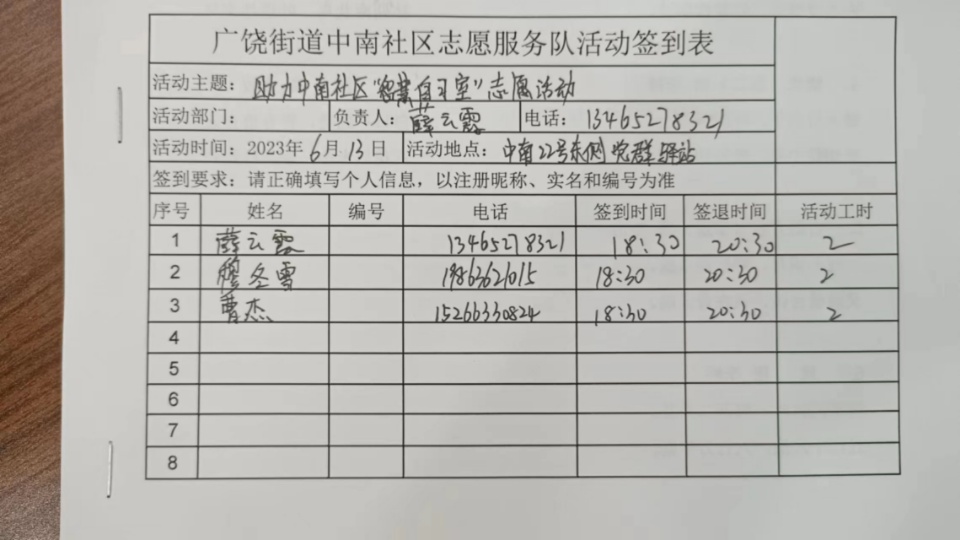 广饶街道中南社区志愿服务队活动签到表
活动主题：助力中南社区“智慧自习室”志愿活动
活动部门： 负责人：薛云霞 电话：13465278321
活动时间：2023年6月13日 活动地点：中南22号东侧党群驿站
签到要求：请正确填写个人信息，以注册昵称、实名和编号为准
序号 姓名 编号 电话 签到时间 签退时间 活动工时
1 薛云霞 13465278321 18:30 20:30 2
2 穆冬雪 19863621015 18:30 20:30 2
3 曹杰 15266330824 18:30 20:30 2
4
5
6
7
8